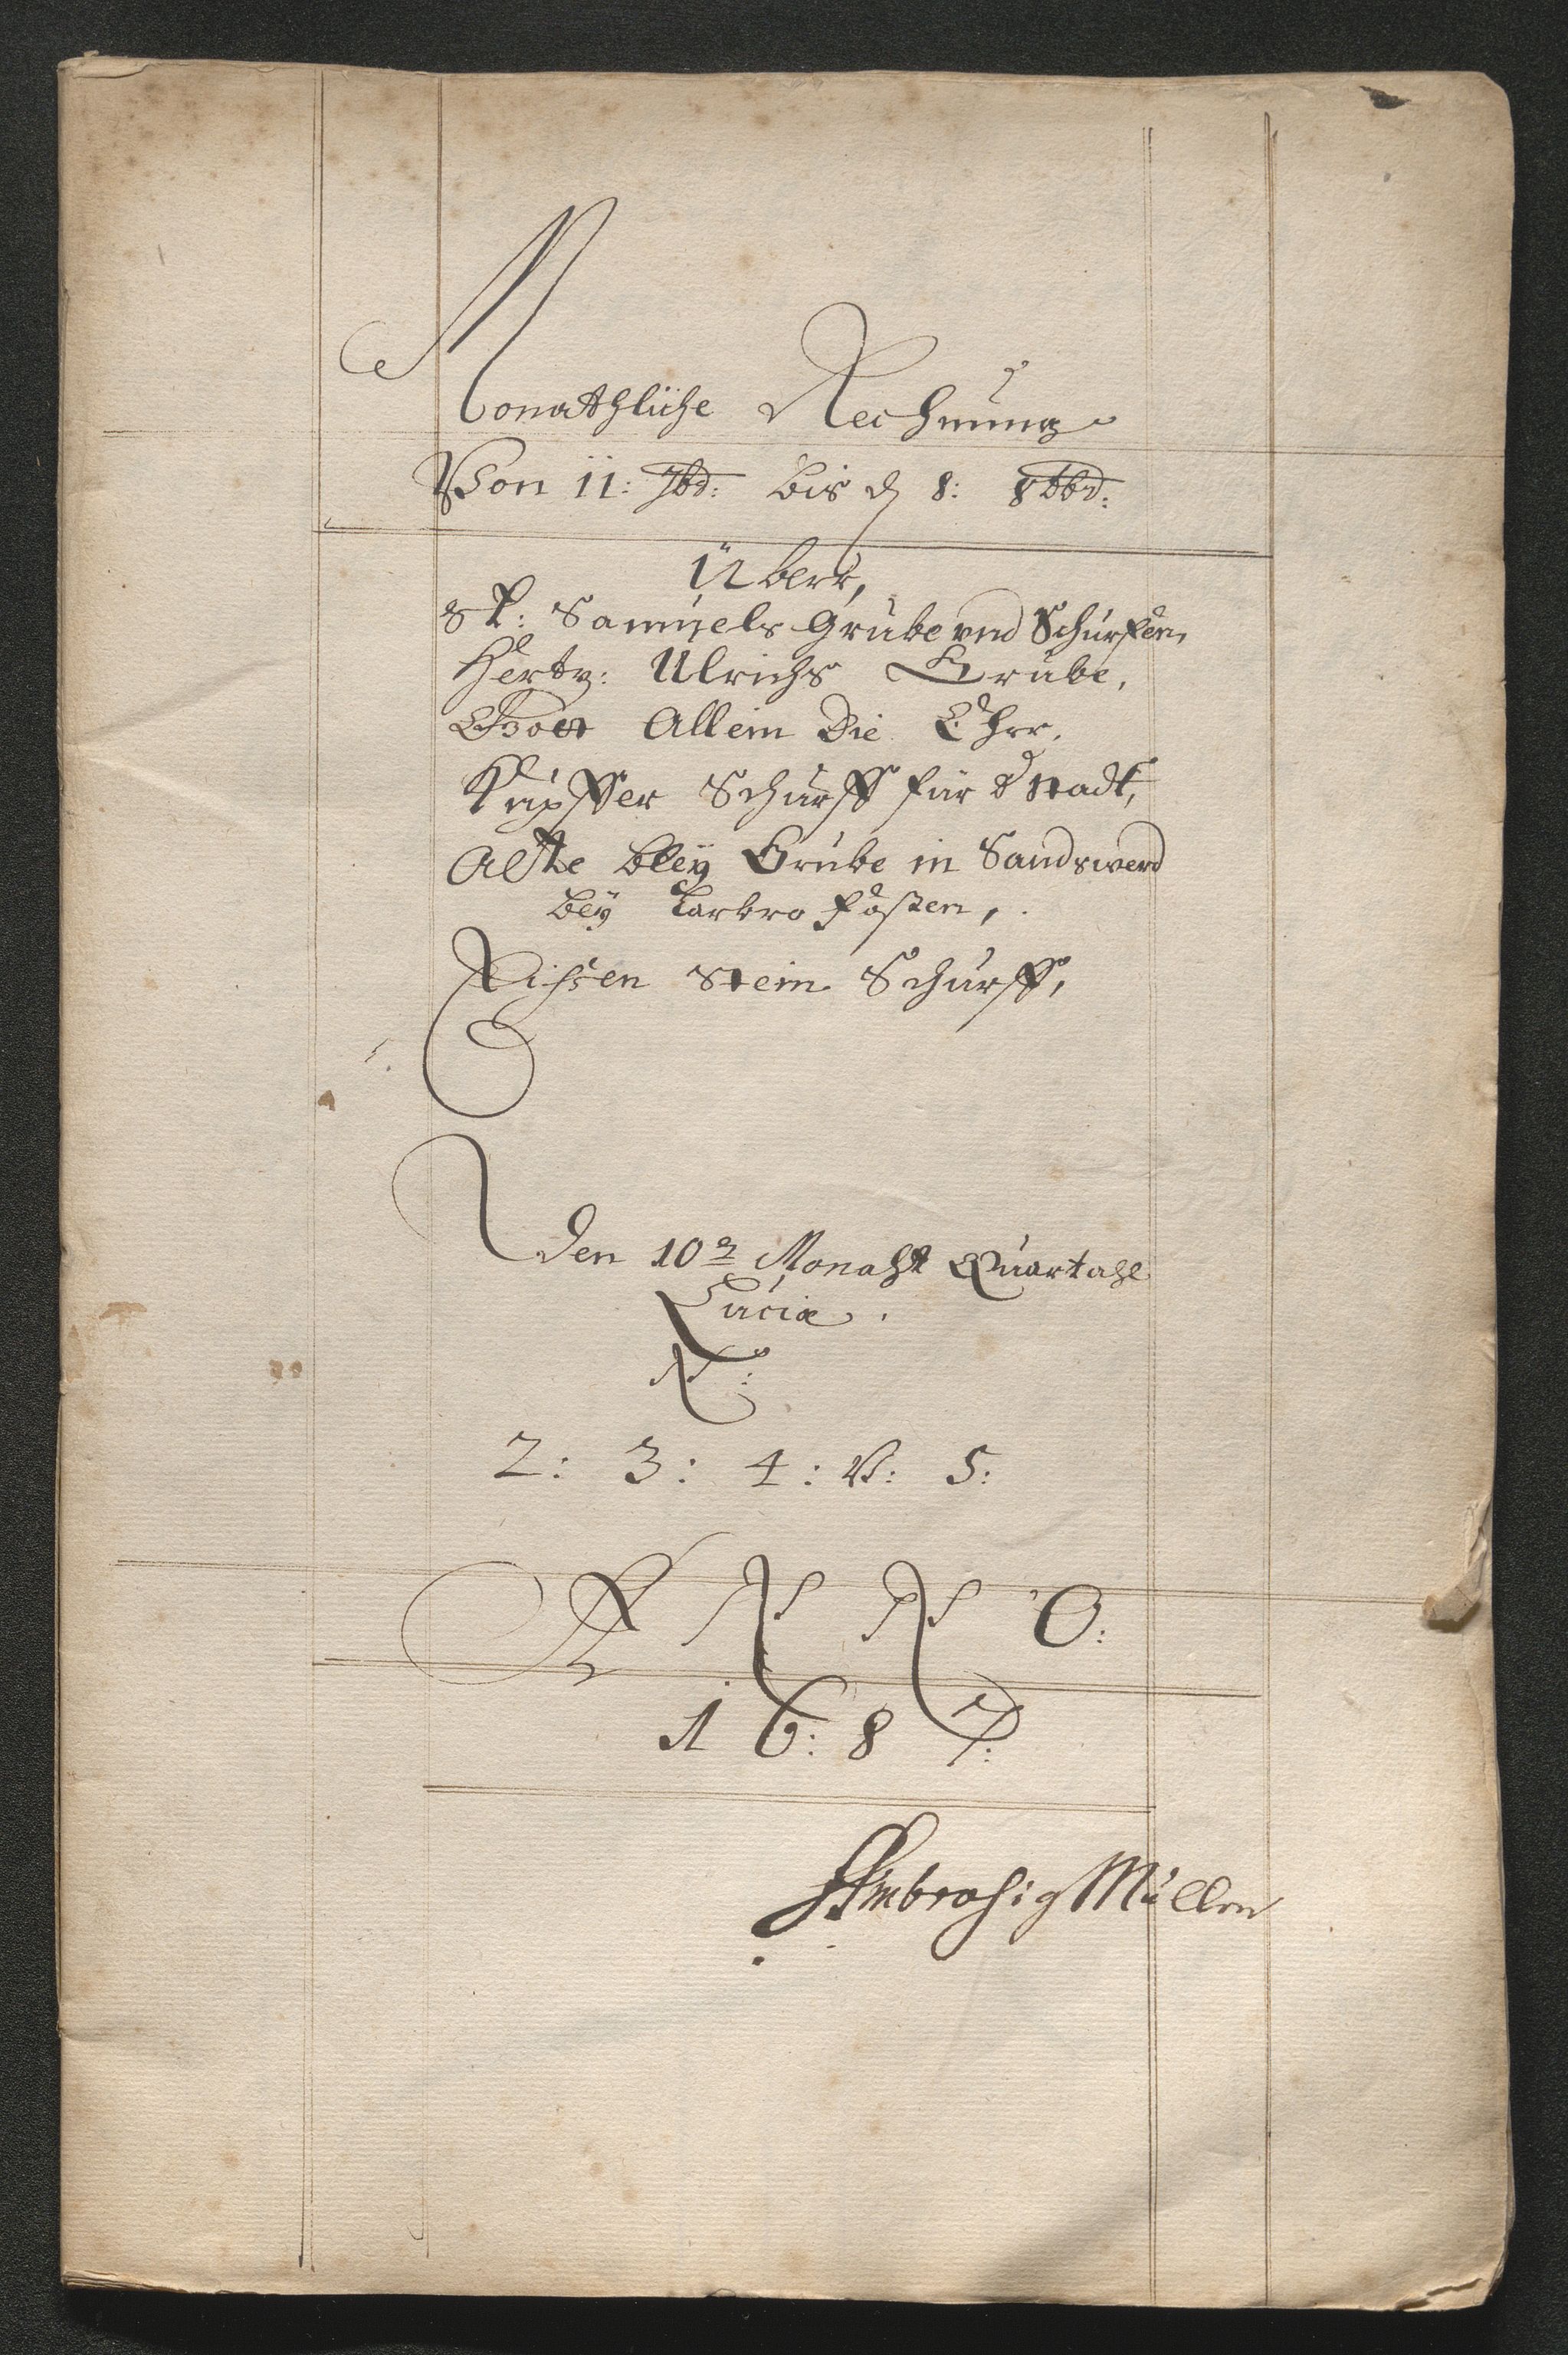 Monathliche Rechnung
Von 11: 7bd: bis d 8: 8tbd:
Über,
St: Samuels Grube vnd Schürffen,
Hertz: Ulrichs Grube,
Gott Allein Die Ehr,
Kupffer Schurff für d Stadt,
Alte Bleÿ Grube in Sandswerd
beÿ Larbro Foßen,
Eissen Stein Schurff,
Den 10n Monaht Quartahl
Luciæ.
N:
2: 3: 4: V: 5:
ANNO:
16:87:
Ambrosig Müller